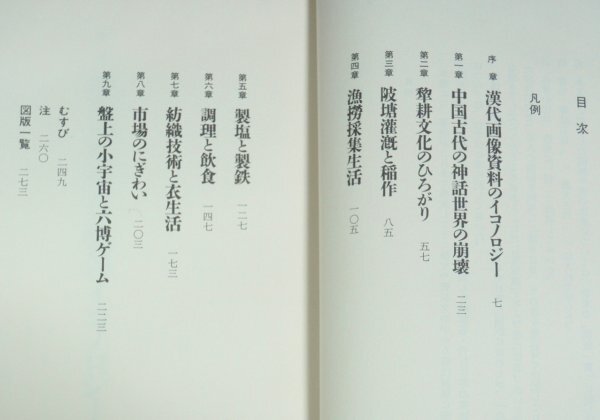 目次
凡例
序章 漢代画像資料のイコノロジー 七
第一章 中国古代の神話世界の崩壊 二三
第二章 犂耕文化のひろがり 五七
第三章 陂塘灌漑と稲作 八五
第四章 漁撈採集生活 一〇五
第五章 製塩と製鉄 一二七
第六章 調理と飲食 一四七
第七章 紡織技術と衣生活 一七三
第八章 市場のにぎわい 二〇三
第九章 盤上の小宇宙と六博ゲーム 二二三
むすび 二四九
注 二六〇
図版一覧 二七二